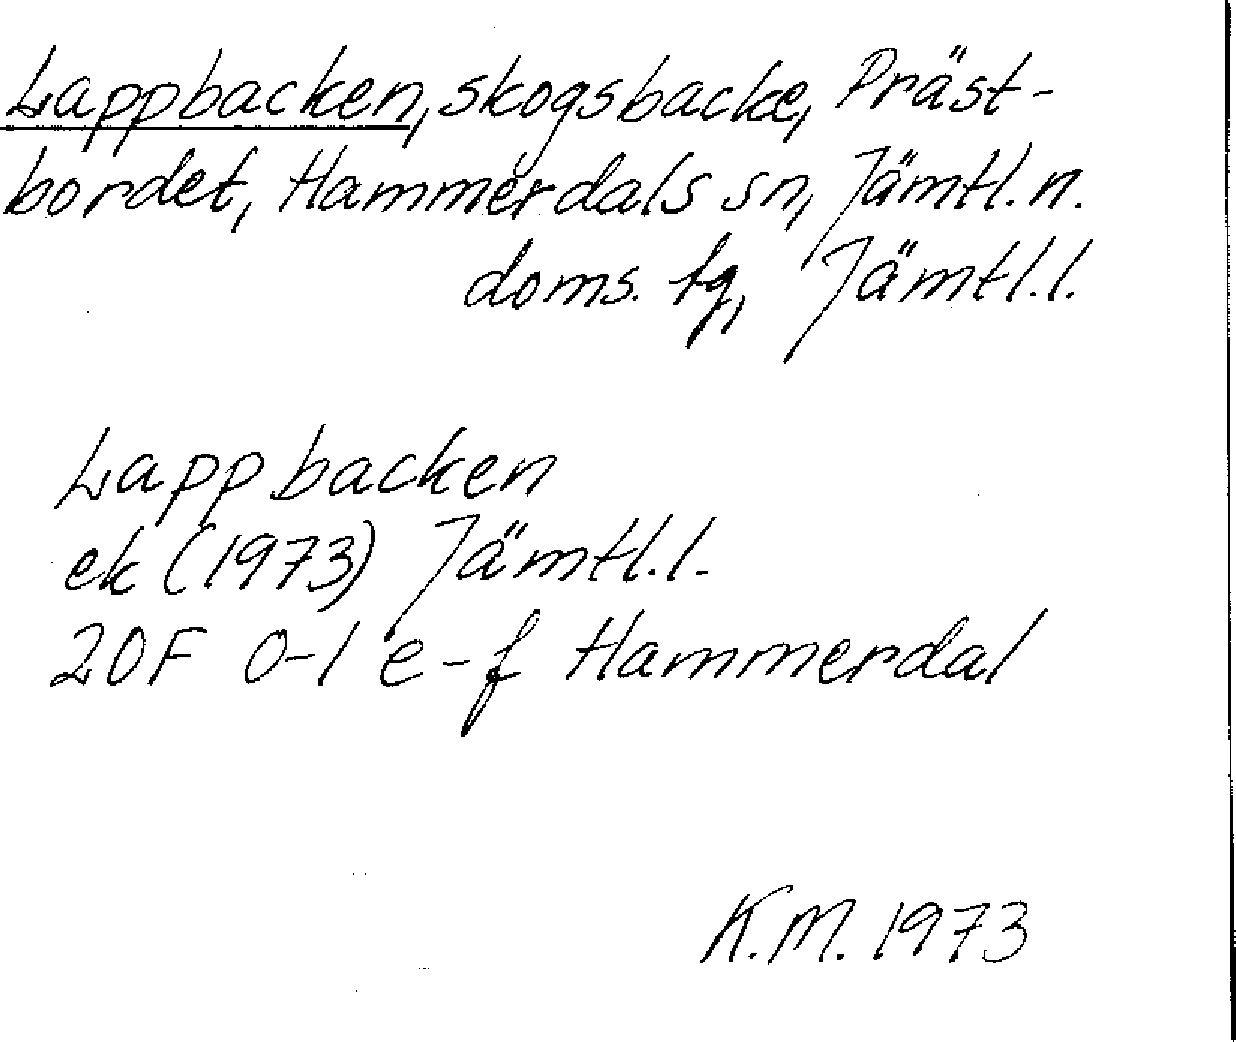 Lappbacken, skogsbacke, Präst-
bordet, Hammerdals sn, Jämtl. n.
doms. tg, Jämtl. l.
Lappbacken
ek (1973) Jämtl. l.
20F 0-1 e-f Hammerdal
K.M. 1973